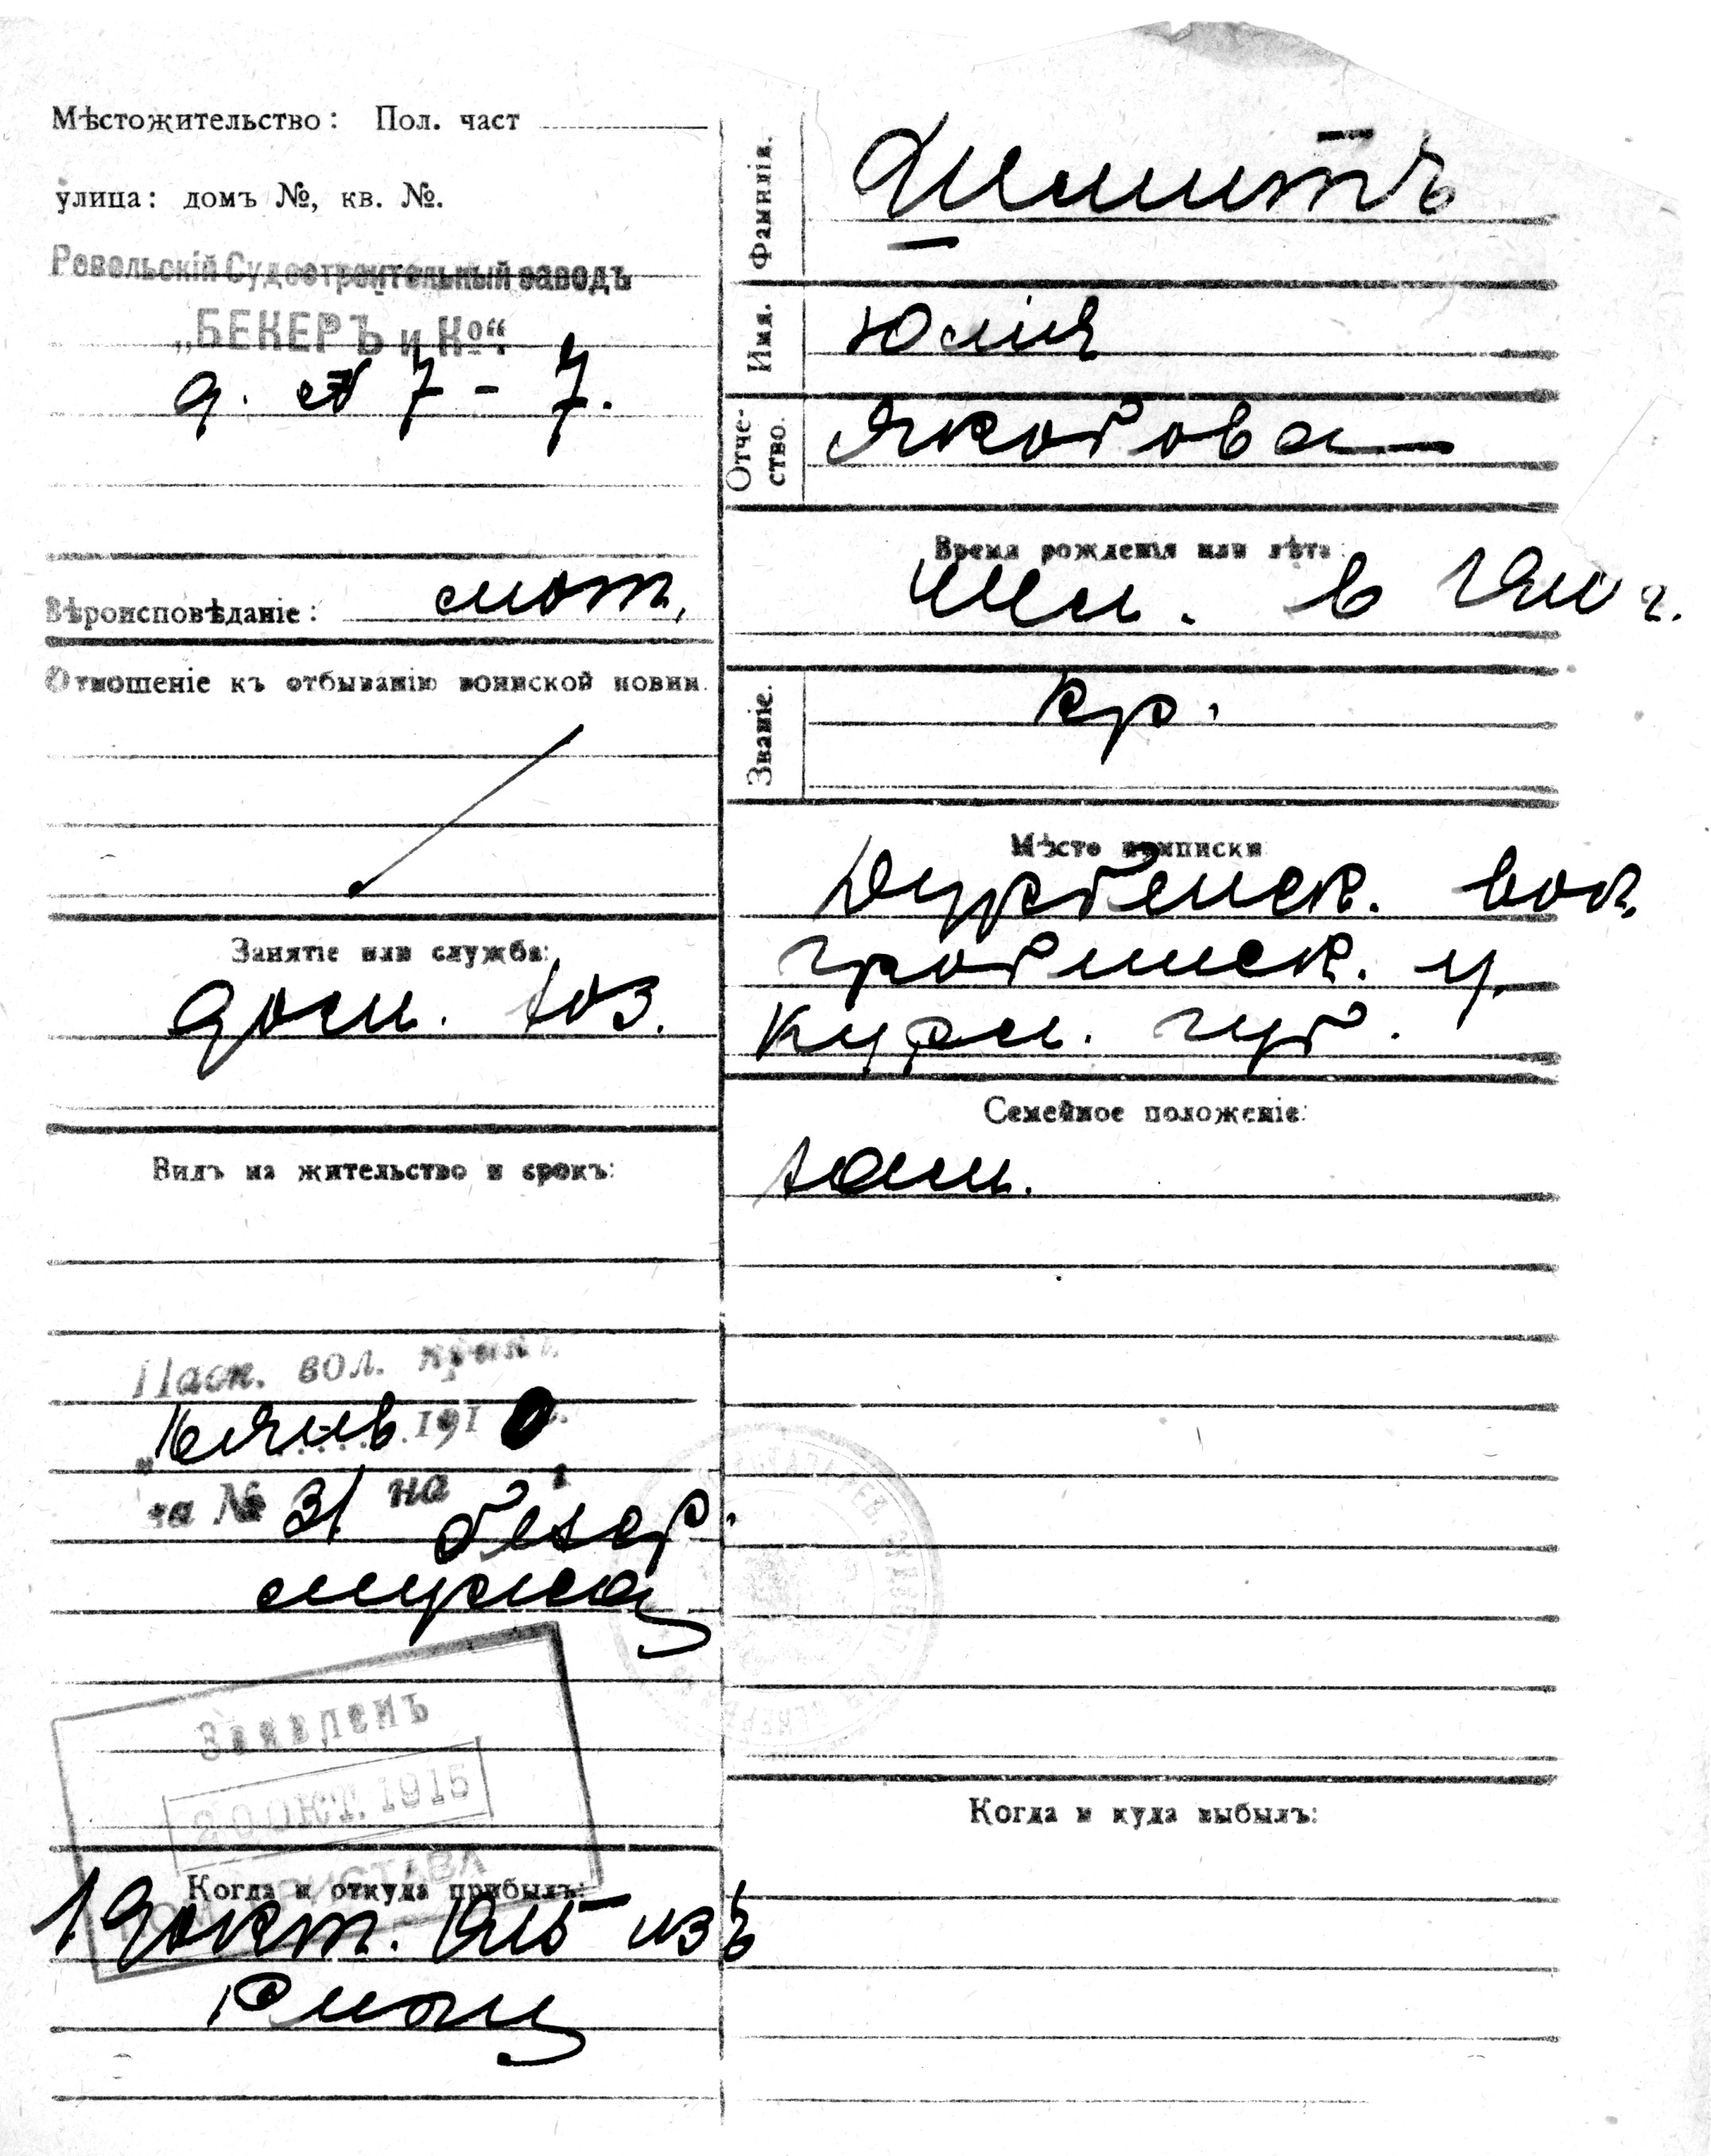 Мѣстожительство: Пол. част
улица: домъ №, кв. №.
Ревельскій Судостроительный заводъ
„БЕКЕРЪ и Ко“.
д. № 7 - 7.
Вѣроисповѣданіе: лют.
Отношеніе къ отбыванію воинской повин.
Занятіе или служба:
дом. хоз.
Видъ на жительство и срокъ:
Пасп. вол. прав.
"16 янв 1910 г.
за № 31 на
безср.
Заявленъ
20 ОКТ. 1915
Когда и откуда прибылъ:
19 окт. 1915 изъ
Риги
Фамилія.
Шмитъ
Имя.
Юлія
Отче-
ство.
Якобова
Время рожденія или лѣта:
в 1910 г.
Званіе.
кр.
Мѣсто приписки
Дурбенск. вол.
Гробинск. у.
Курл. губ.
Семейное положеніе:
Когда и куда выбылъ: